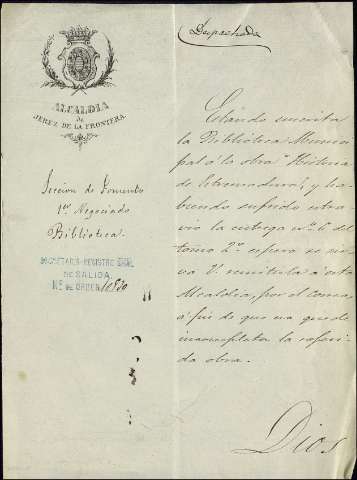 Despachada
ALCALDIA
DE
JEREZ DE LA FRONTERA.
Seccion de Fomento
1er Negociado
Biblioteca
SECRETARIA-REGISTRO GRAL
DE SALIDA
Nº DE ORDEN 10830
Estando suscrita
la Biblioteca Munici
pal á la obra "Historia
de Estremadura", y ha
biendo sufrido estra
vio la entrega nº 6 del
tomo 2º espero se sir
va V. remitirla á esta
Alcaldia, por el correo
á fin de que no quede
incompleta la referi
da obra.
Dios